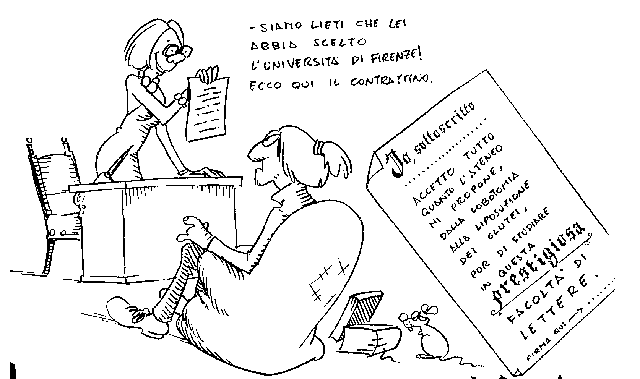 - SIAMO LIETI CHE LEI
ABBIA SCELTO
L'UNIVERSITÀ DI FIRENZE!
ECCO QUI IL CONTRATTINO.
Io sottoscritto
....................
ACCETTO TUTTO
QUANTO L'ATENEO
MI PROPONE,
DALLA LOBOTOMIA
ALLA LIPOSUZIONE
DEI GLUTEI,
POR DI STUDIARE
IN QUESTA
prestigiosa
FACOLTA' DI
LETTERE.
FIRMA QUI → ........